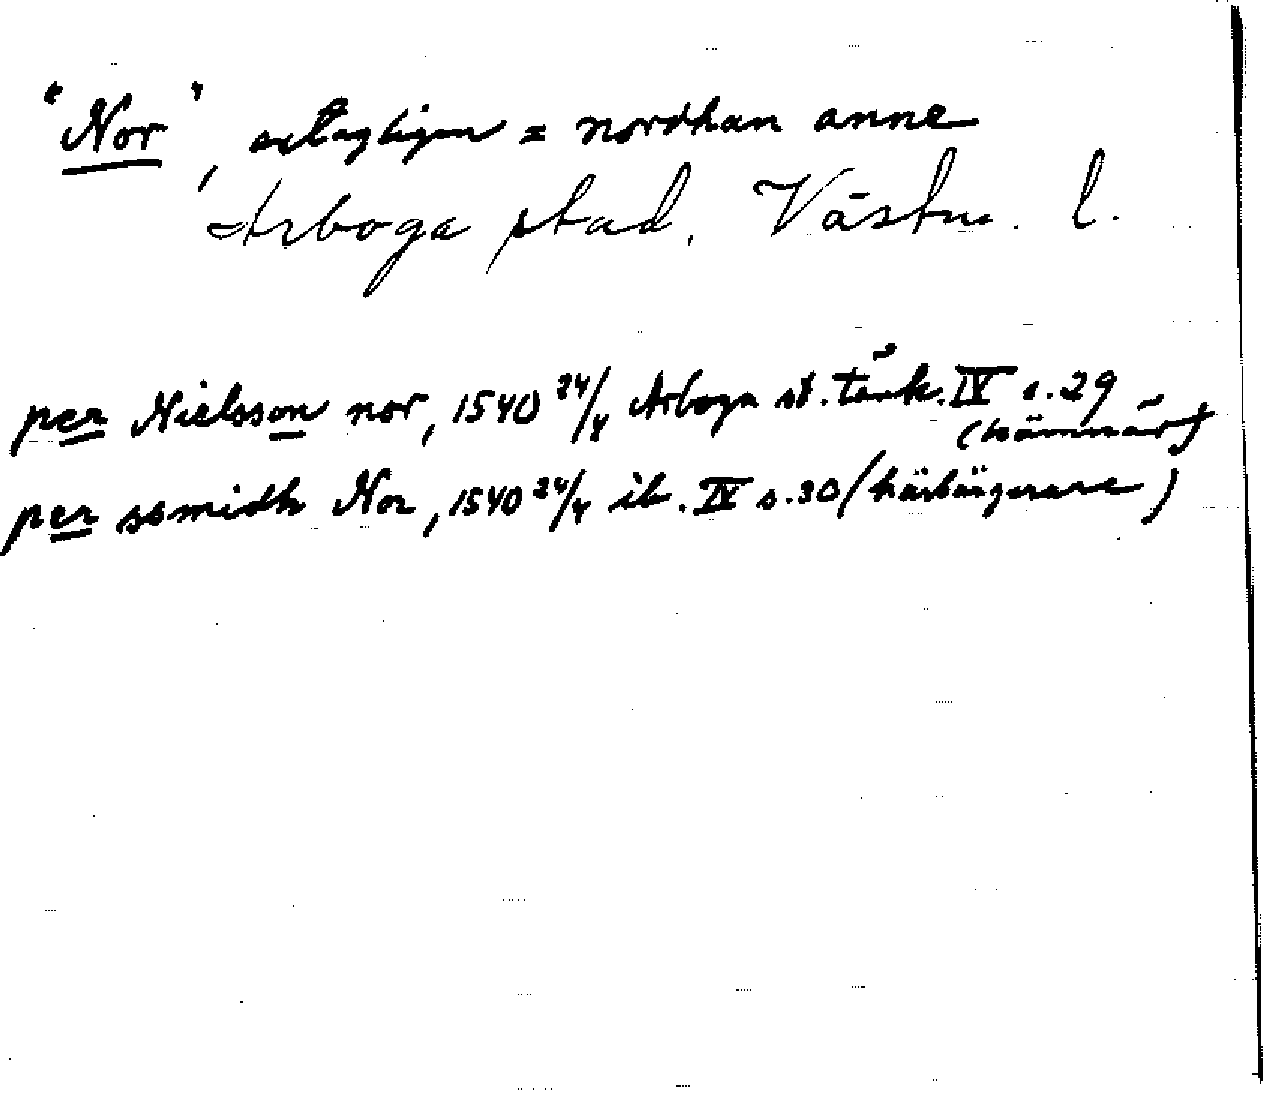 "Nor", antagligen = nordhan anne
Arboga stad, Västm. l.
per Nielsson nor, 1540 24/4 Arboga st. tänk. IV s. 29
(kämnär)
per ssmidh Nor, 1540 24/4 ib. IV s. 30 (härbärgerare)